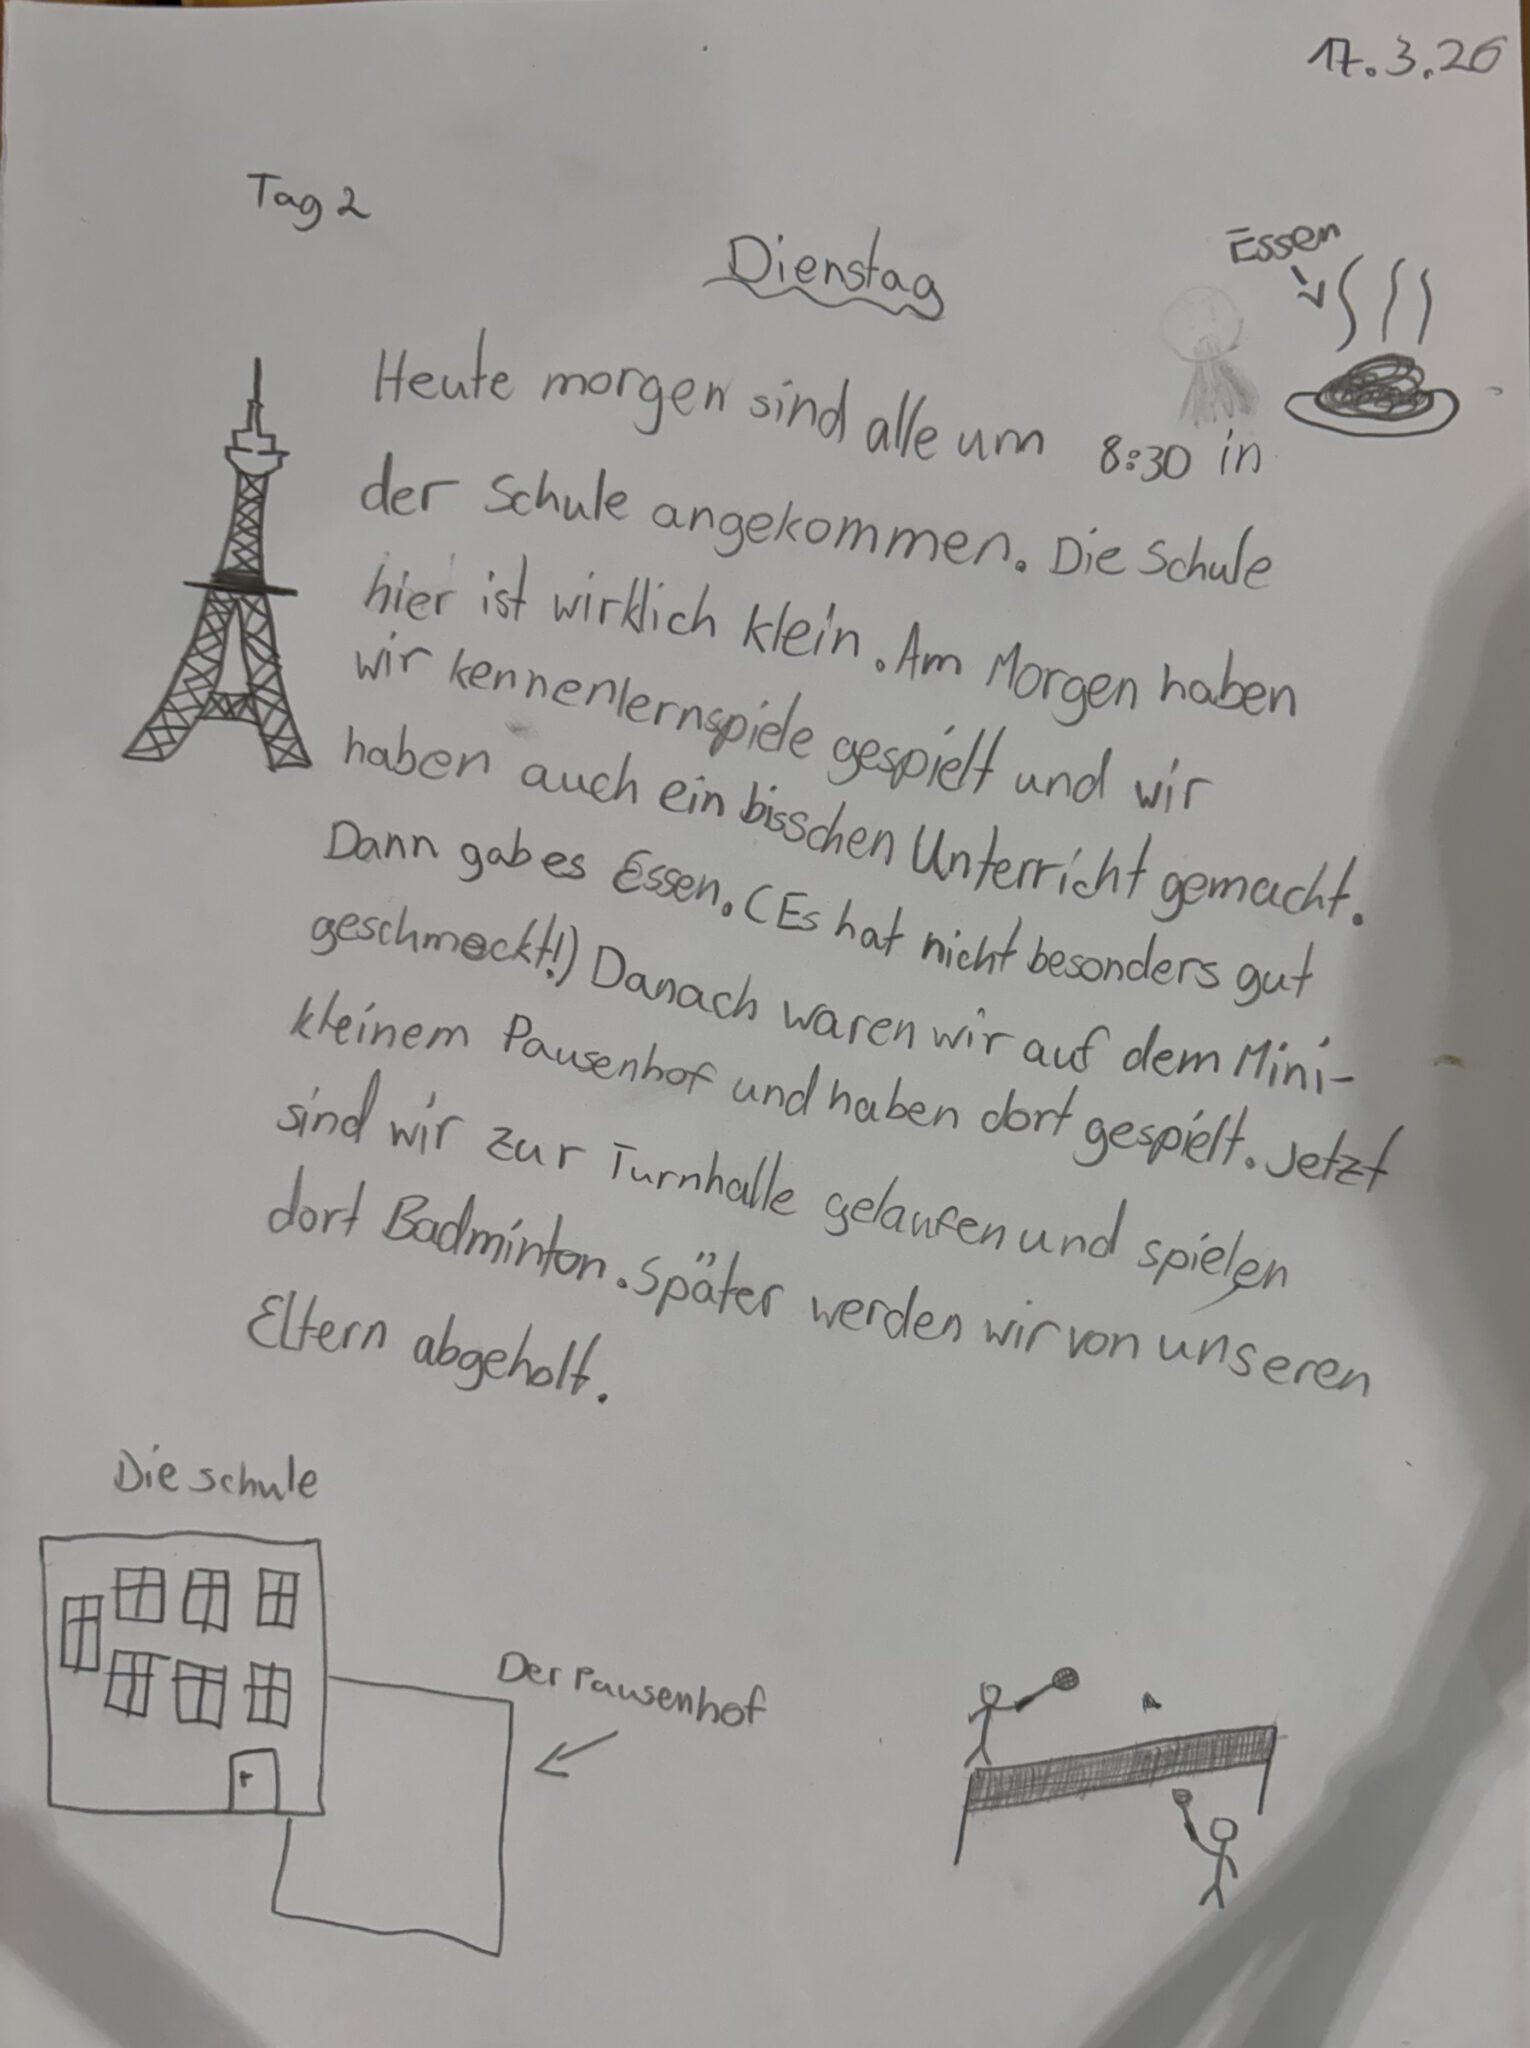 17.3.26
Tag 2
Dienstag
Essen
Heute morgen sind alle um 8:30 in
der Schule angekommen. Die Schule
hier ist wirklich klein. Am Morgen haben
wir kennenlernspiele gespielt und wir
haben auch ein bisschen Unterricht gemacht.
Dann gab es Essen. (Es hat nicht besonders gut
geschmeckt!) Danach waren wir auf dem Mini-
kleinem Pausenhof und haben dort gespielt. Jetzt
sind wir zur Turnhalle gelaufen und spielen
dort Badminton. Später werden wir von unseren
Eltern abgeholt.
Die schule
Der Pausenhof